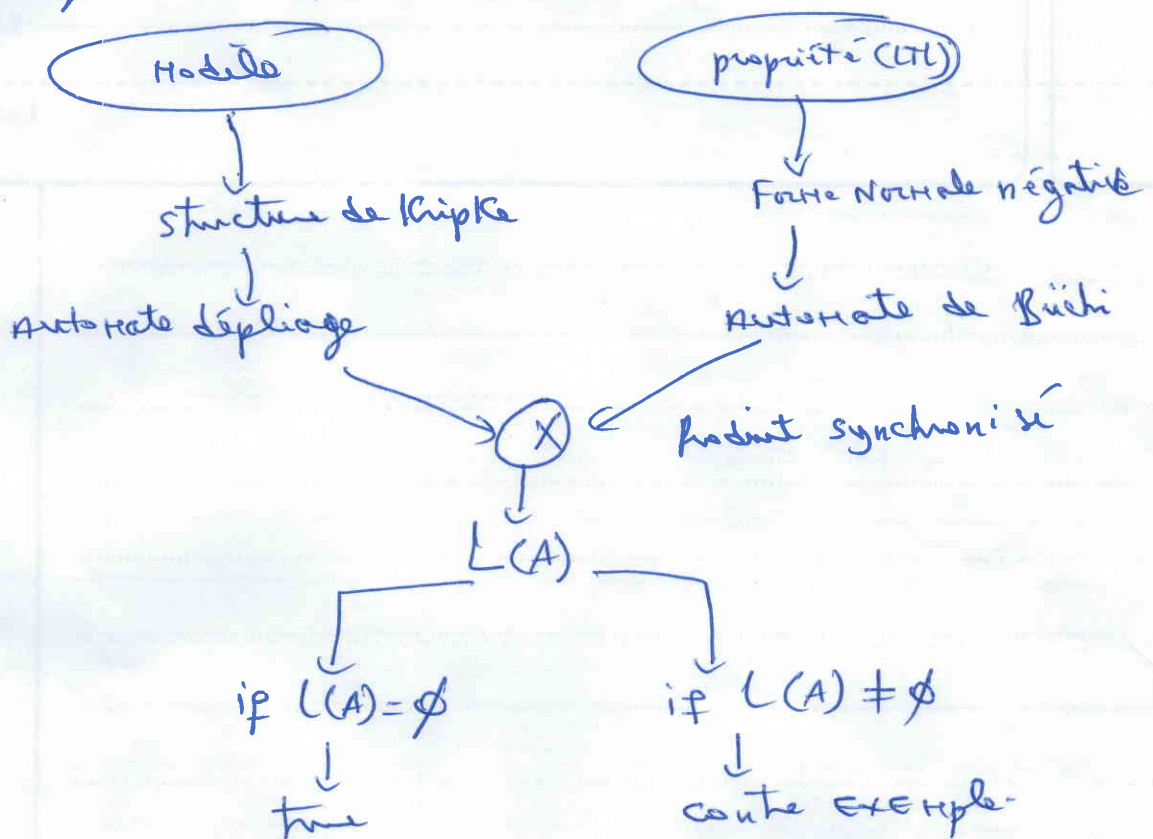 Modèle
propriété (LTL)
structure de Kripke
Forme Normale négative
Automate dépliage
Automate de Büchi
X
Produit synchronisé
L(A)
if L(A) = ∅
if L(A) ≠ ∅
true
contre EXEMple.